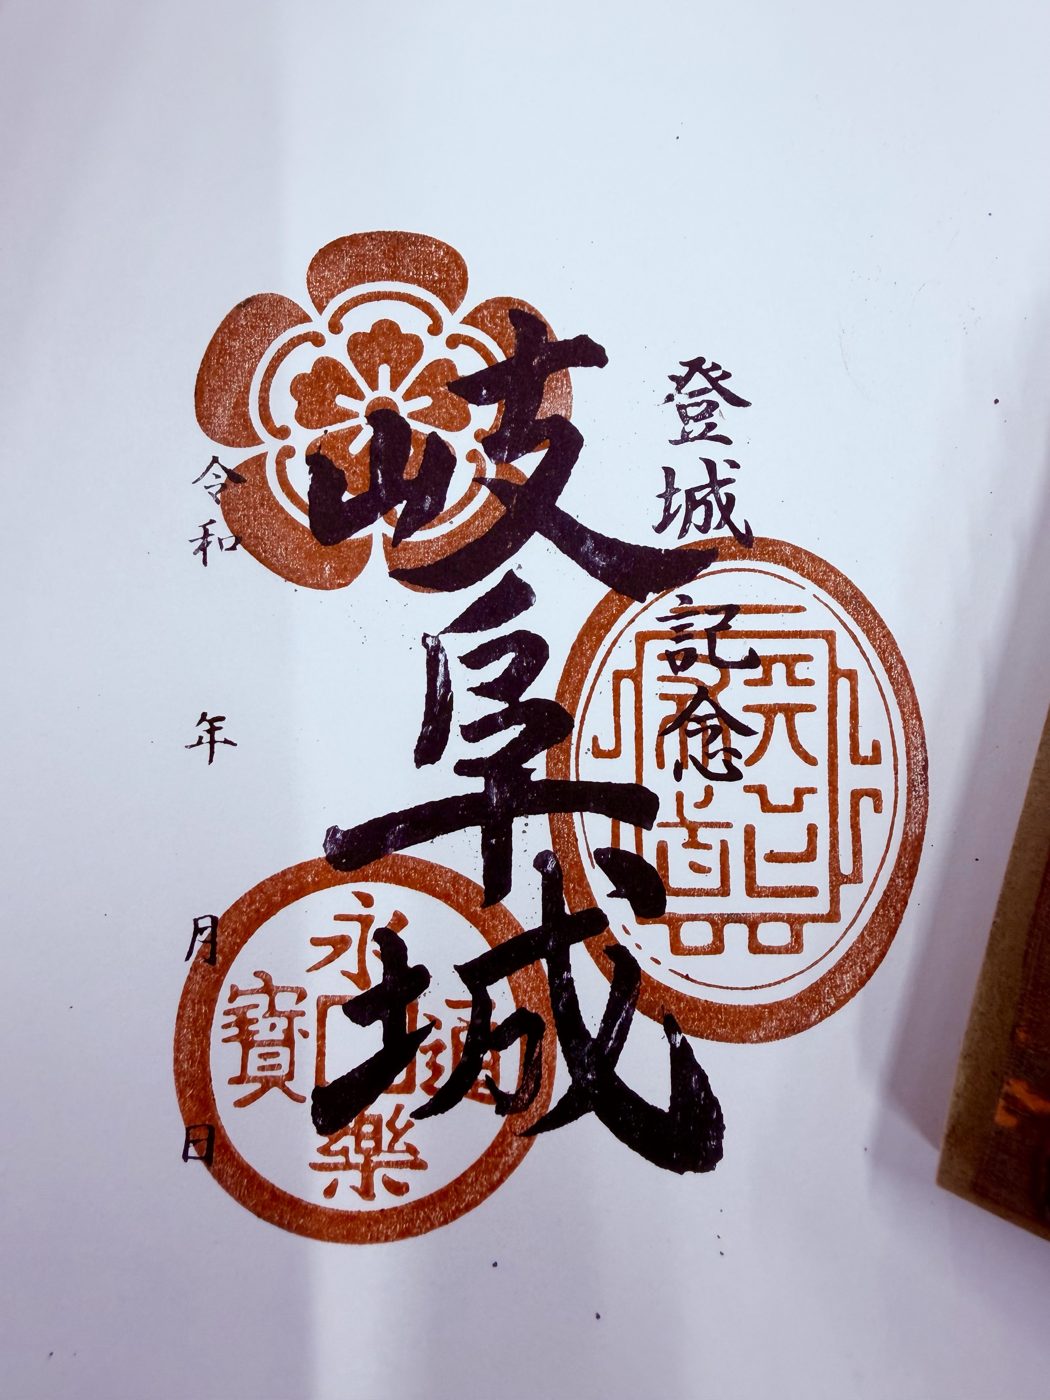 登城記念
岐阜城
令和 年 月 日
永樂通寳
天下布武